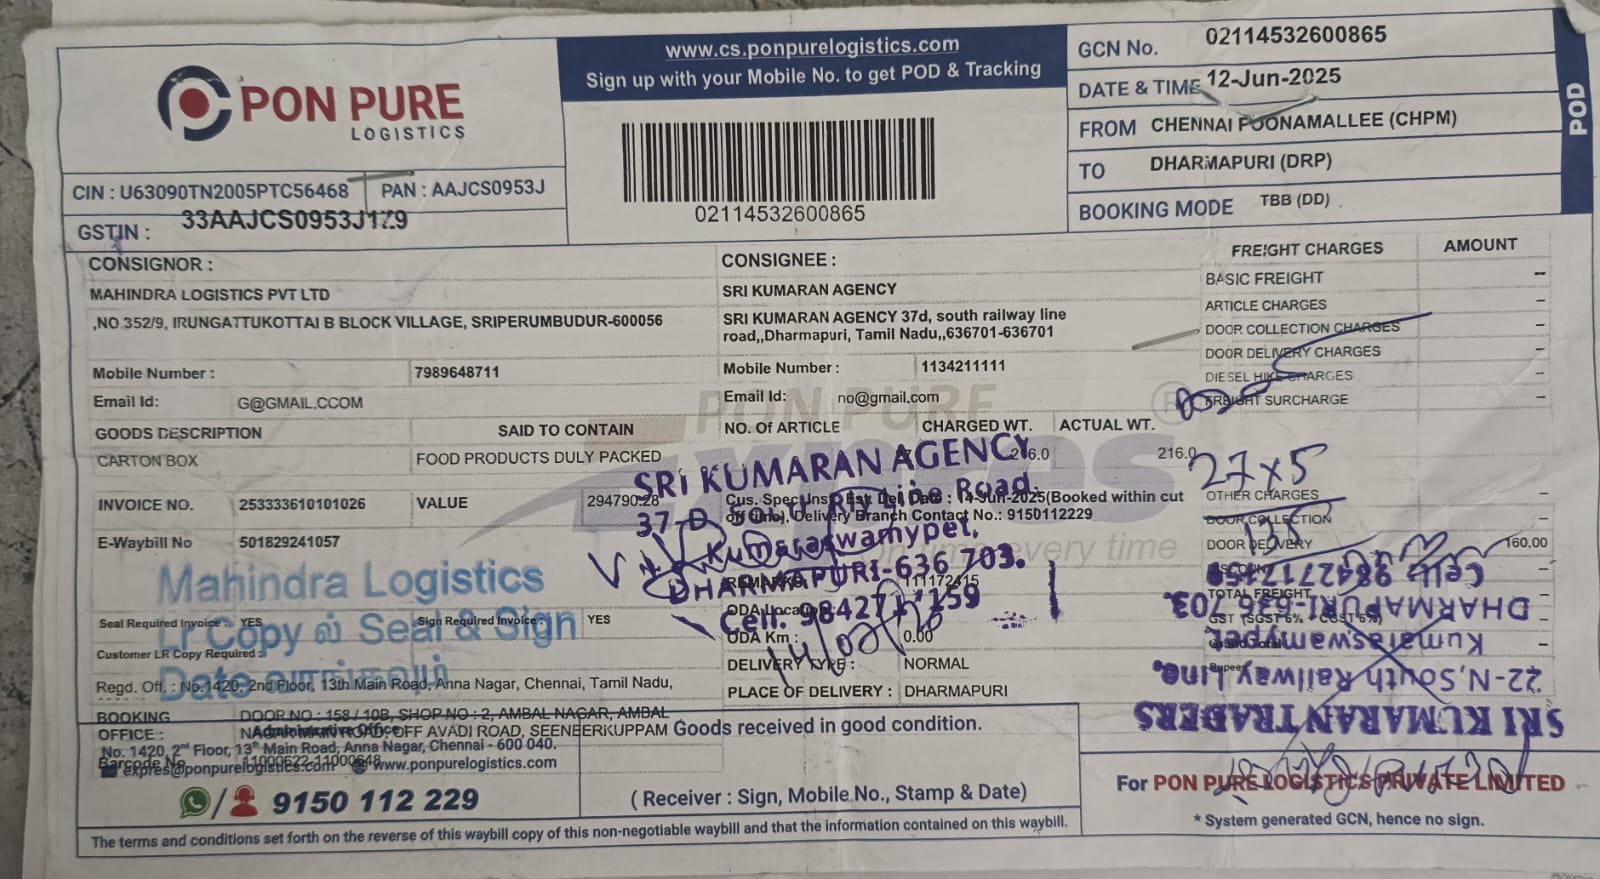 PON PURE
LOGISTICS
CIN : U63090TN2005PTC56468
PAN : AAJCS0953J
GSTIN : 33AAJCS0953J1Z9
www.cs.ponpurelogistics.com
Sign up with your Mobile No. to get POD & Tracking
02114532600865
GCN No. 02114532600865
DATE & TIME 12-Jun-2025
FROM CHENNAI POONAMALLEE (CHPM)
TO DHARMAPURI (DRP)
BOOKING MODE TBB (DD)
POD
CONSIGNOR :
MAHINDRA LOGISTICS PVT LTD
,NO 352/9, IRUNGATTUKOTTAI B BLOCK VILLAGE, SRIPERUMBUDUR-600056
Mobile Number : 7989648711
Email Id: G@GMAIL.CCOM
CONSIGNEE :
SRI KUMARAN AGENCY
SRI KUMARAN AGENCY 37d, south railway line
road,,Dharmapuri, Tamil Nadu,,636701-636701
Mobile Number : 1134211111
Email Id: no@gmail.com
FREIGHT CHARGES AMOUNT
BASIC FREIGHT --
ARTICLE CHARGES --
DOOR COLLECTION CHARGES --
DOOR DELIVERY CHARGES --
DIESEL HIKE CHARGES --
FREIGHT SURCHARGE --
27x5
OTHER CHARGES --
DOOR COLLECTION --
135
DOOR DELIVERY 160.00
TOTAL FREIGHT
GST (SGST 6% + CGST 6%)
GOODS DESCRIPTION SAID TO CONTAIN
CARTON BOX FOOD PRODUCTS DULY PACKED
NO. Of ARTICLE CHARGED WT. ACTUAL WT.
216.0 216.0
PON PURE
Expres
On time every time
INVOICE NO. 253333610101026 VALUE 294790.28
E-Waybill No 501829241057
Cus. Spec Ins. Est. Del. Date : 14-Jun-2025(Booked within cut
off time). Delivery Branch Contact No.: 9150112229
REMARKS: 111172415
ODA Location:
ODA Km : 0.00
DELIVERY TYPE : NORMAL
PLACE OF DELIVERY : DHARMAPURI
SRI KUMARAN AGENCY
37-D South Rly Line Road.
Kumaraswamypet,
DHARMAPURI-636 703.
Cell: 9842717159
Mahindra Logistics
Lr Copy ல் Seal & Sign
Date வாங்கவும்
Seal Required Invoice : YES Sign Required Invoice : YES
Customer LR Copy Required :
Regd. Off. : No.1420, 2nd Floor, 13th Main Road, Anna Nagar, Chennai, Tamil Nadu,
BOOKING OFFICE : DOOR NO : 158 / 10B, SHOP NO : 2, AMBAL NAGAR, AMBAL
NAGAR MAIN ROAD, OFF AVADI ROAD, SEENEERKUPPAM
Administrative Office
No. 1420, 2nd Floor, 13th Main Road, Anna Nagar, Chennai - 600 040.
Barcode No 11000622-11000648
expres@ponpurelogistics.com www.ponpurelogistics.com
9150 112 229
Goods received in good condition.
( Receiver : Sign, Mobile No., Stamp & Date)
SRI KUMARAN TRADERS
22-N, South Railway Line,
Kumaraswamypet,
DHARMAPURI-636 703.
Cell: 9842717159
For PON PURE LOGISTICS PRIVATE LIMITED
* System generated GCN, hence no sign.
The terms and conditions set forth on the reverse of this waybill copy of this non-negotiable waybill and that the information contained on this waybill.